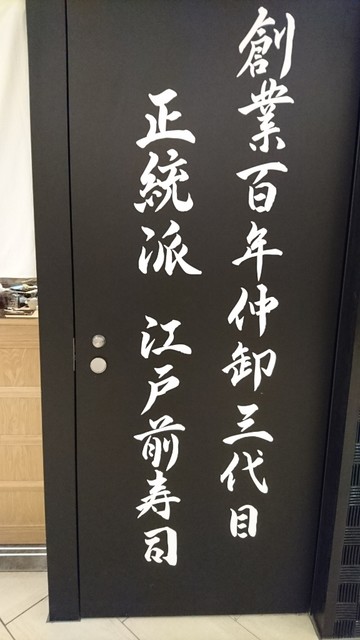 創業百年仲卸三代目
正統派 江戸前寿司